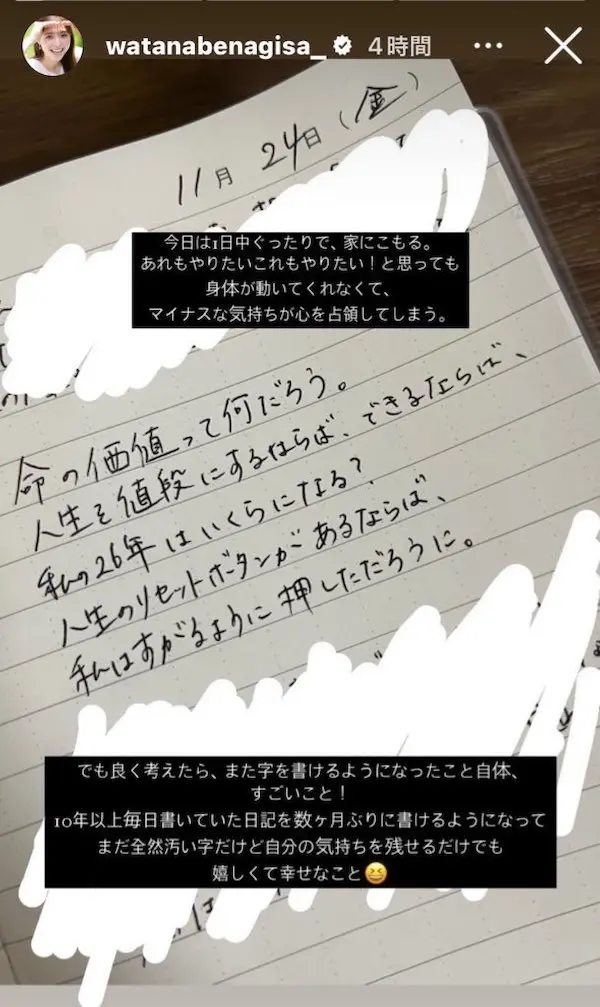 watanabenagisa_ 4時間
11月 24日(金)
今日は1日中ぐったりで、家にこもる。
あれもやりたいこれもやりたい！と思っても
身体が動いてくれなくて、
マイナスな気持ちが心を占領してしまう。
命の価値って何だろう。
人生を値段にするならば、できるならば、
私の26年はいくらになる?
人生のリセットボタンがあるならば、
私はすがるように押しただろうに。
でも良く考えたら、また字を書けるようになったこと自体、
すごいこと！
10年以上毎日書いていた日記を数ヶ月ぶりに書けるようになって
まだ全然汚い字だけど自分の気持ちを残せるだけでも
嬉しくて幸せなこと😆